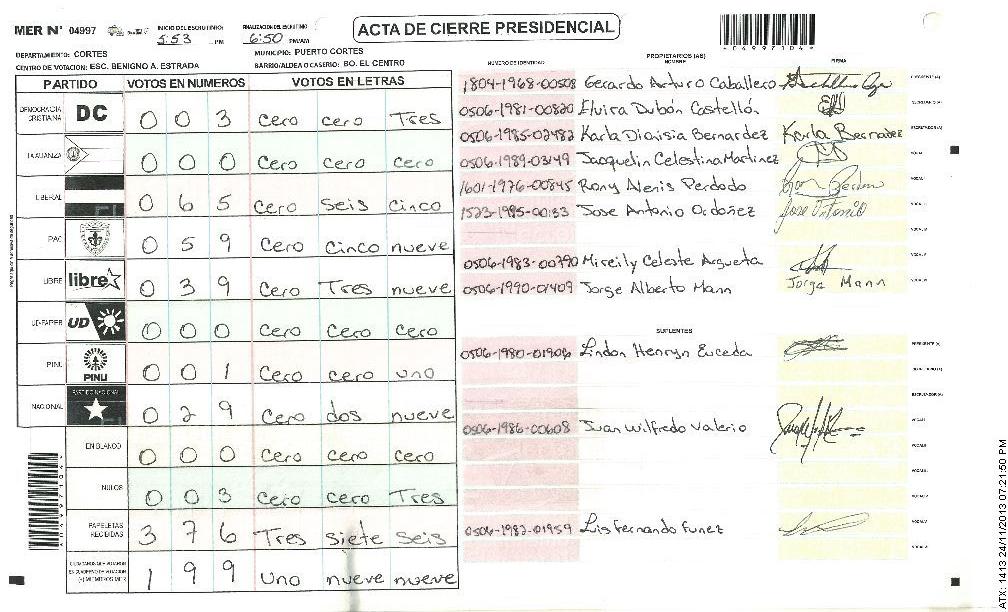 MER N° 04997 INICIO DEL ESCRUTINIO: 5:53 PM FINALIZACION DEL ESCRUTINIO 6:50 PM/AM
ACTA DE CIERRE PRESIDENCIAL
DEPARTAMENTO: CORTES MUNICIPIO: PUERTO CORTES
CENTRO DE VOTACION: ESC. BENIGNO A. ESTRADA BARRIO/ALDEA O CASERIO: BO. EL CENTRO
PARTIDO VOTOS EN NUMEROS VOTOS EN LETRAS
DEMOCRACIA CRISTIANA DC 0 0 3 cero cero Tres
LA ALIANZA 0 0 0 cero cero cero
LIBERAL 0 6 5 cero seis cinco
PAC 0 5 9 cero cinco nueve
LIBRE libre 0 3 9 cero Tres nueve
UD-FAPER UD 0 0 0 cero cero cero
PINU PINU 0 0 1 cero cero uno
NACIONAL PARTIDO NACIONAL 0 2 9 cero dos nueve
EN BLANCO 0 0 0 cero cero cero
NULOS 0 0 3 cero cero Tres
PAPELETAS RECIBIDAS 3 7 6 Tres siete seis
1 9 9 uno nueve nueve
NUMERO DE IDENTIDAD PROPIETARIOS (AS) NOMBRE FIRMA
1804-1968-00508 Gerardo Arturo Caballero
0506-1981-00820 Elvira Dubón Castellón
0506-1985-02482 Karla Dionisia Bernardez Karla Bernadez
0506-1989-03149 Jacquelin Celestina Martinez
1601-1976-00845 Rony Alenis Perdodo
Jose Antonio Ordoñez Jose Antonio
0506-1983-00790 Mireily Celeste Argueta
0506-1990-01409 Jorge Alberto Mann Jorge Mann
SUPLENTES
0506-1980-01906 Lindon Henryn Euceda
0506-1986-00608 Juan Wilfredo Valerio
0506-1982-01959 Lis Fernando Funez
ATX: 1413 24/11/2013 07:21:50 PM